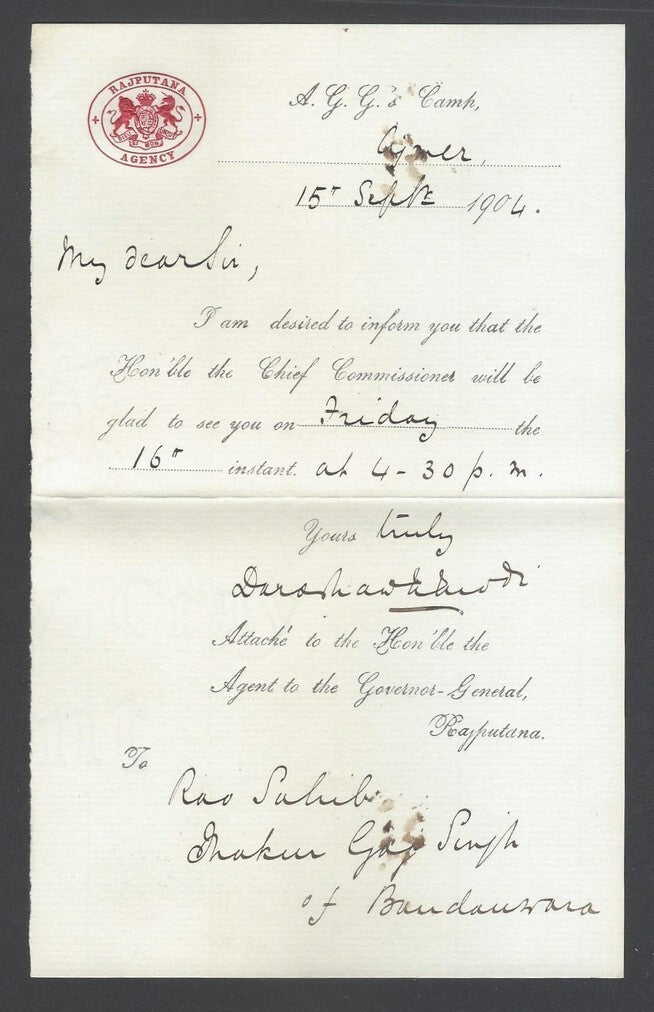 RAJPUTANA
AGENCY
DIEU ET MON DROIT
A. G. G.'s Camp,
Ajmer,
15th Septr 1904.
My dear Sir,
I am desired to inform you that the
Hon'ble the Chief Commissioner will be
glad to see you on Friday the
16th instant. at 4-30 p. m.
Yours truly
Attaché to the Hon'ble the
Agent to the Governor-General,
Rajputana.
To
Rao Sahib
Thakur Gaj Singh
of Bandanwara